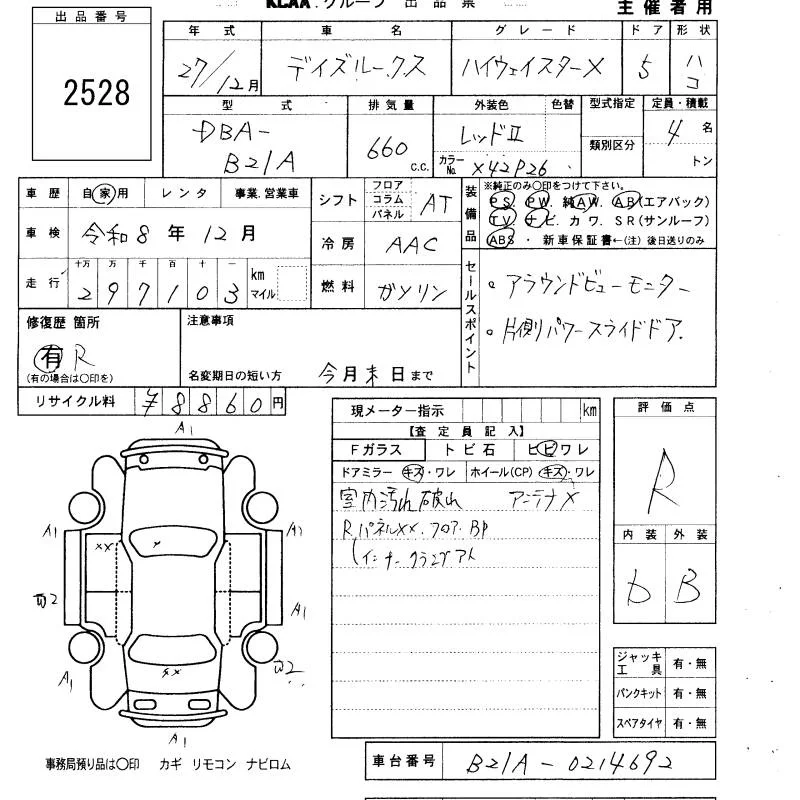 KCAA.グループ 出品票
主催者用
出品番号
2528
年式 車名 グレード ドア 形状
27/12月 デイズルークス ハイウェイスターX 5 ハコ
型式 排気量 外装色 色替 型式指定 定員・積載
DBA-
B21A
660 c.c.
レッドII
カラーNo. X42P26
類別区分
4 名
トン
車歴 自家用 レンタ 事業.営業車
車検 令和8年12月
走行 十万 万 千 百 十 一
297103 km マイル
シフト フロア コラム パネル AT
冷房 AAC
燃料 ガソリン
装備品
※純正のみ○印をつけて下さい。
PS. PW. 純AW. AB(エアバック)
TV ナビ. カワ. SR(サンルーフ)
ABS ・ 新車保証書←(注)後日送りのみ
セールスポイント
。アラウンドビューモニター
。片側パワースライドドア.
修復歴 箇所
有 R
(有の場合は○印を)
注意事項
名変期日の短い方 今月末日まで
リサイクル料 ¥8860円
現メーター指示 km
【査定員記入】
Fガラス トビ石 ヒビワレ
ドアミラー キズ・ワレ ホイール(CP) キズ・ワレ
室内汚れ破れ アンテナX
Rパネルxx.フロアBP
評価点
R
内装 外装
D B
A1
A1 A1
xx
2 A1
A1 2
xx
A1
ジャッキ工具 有・無
パンクキット 有・無
スペアタイヤ 有・無
事務局預り品は○印 カギ リモコン ナビロム
車台番号 B21A-0214692